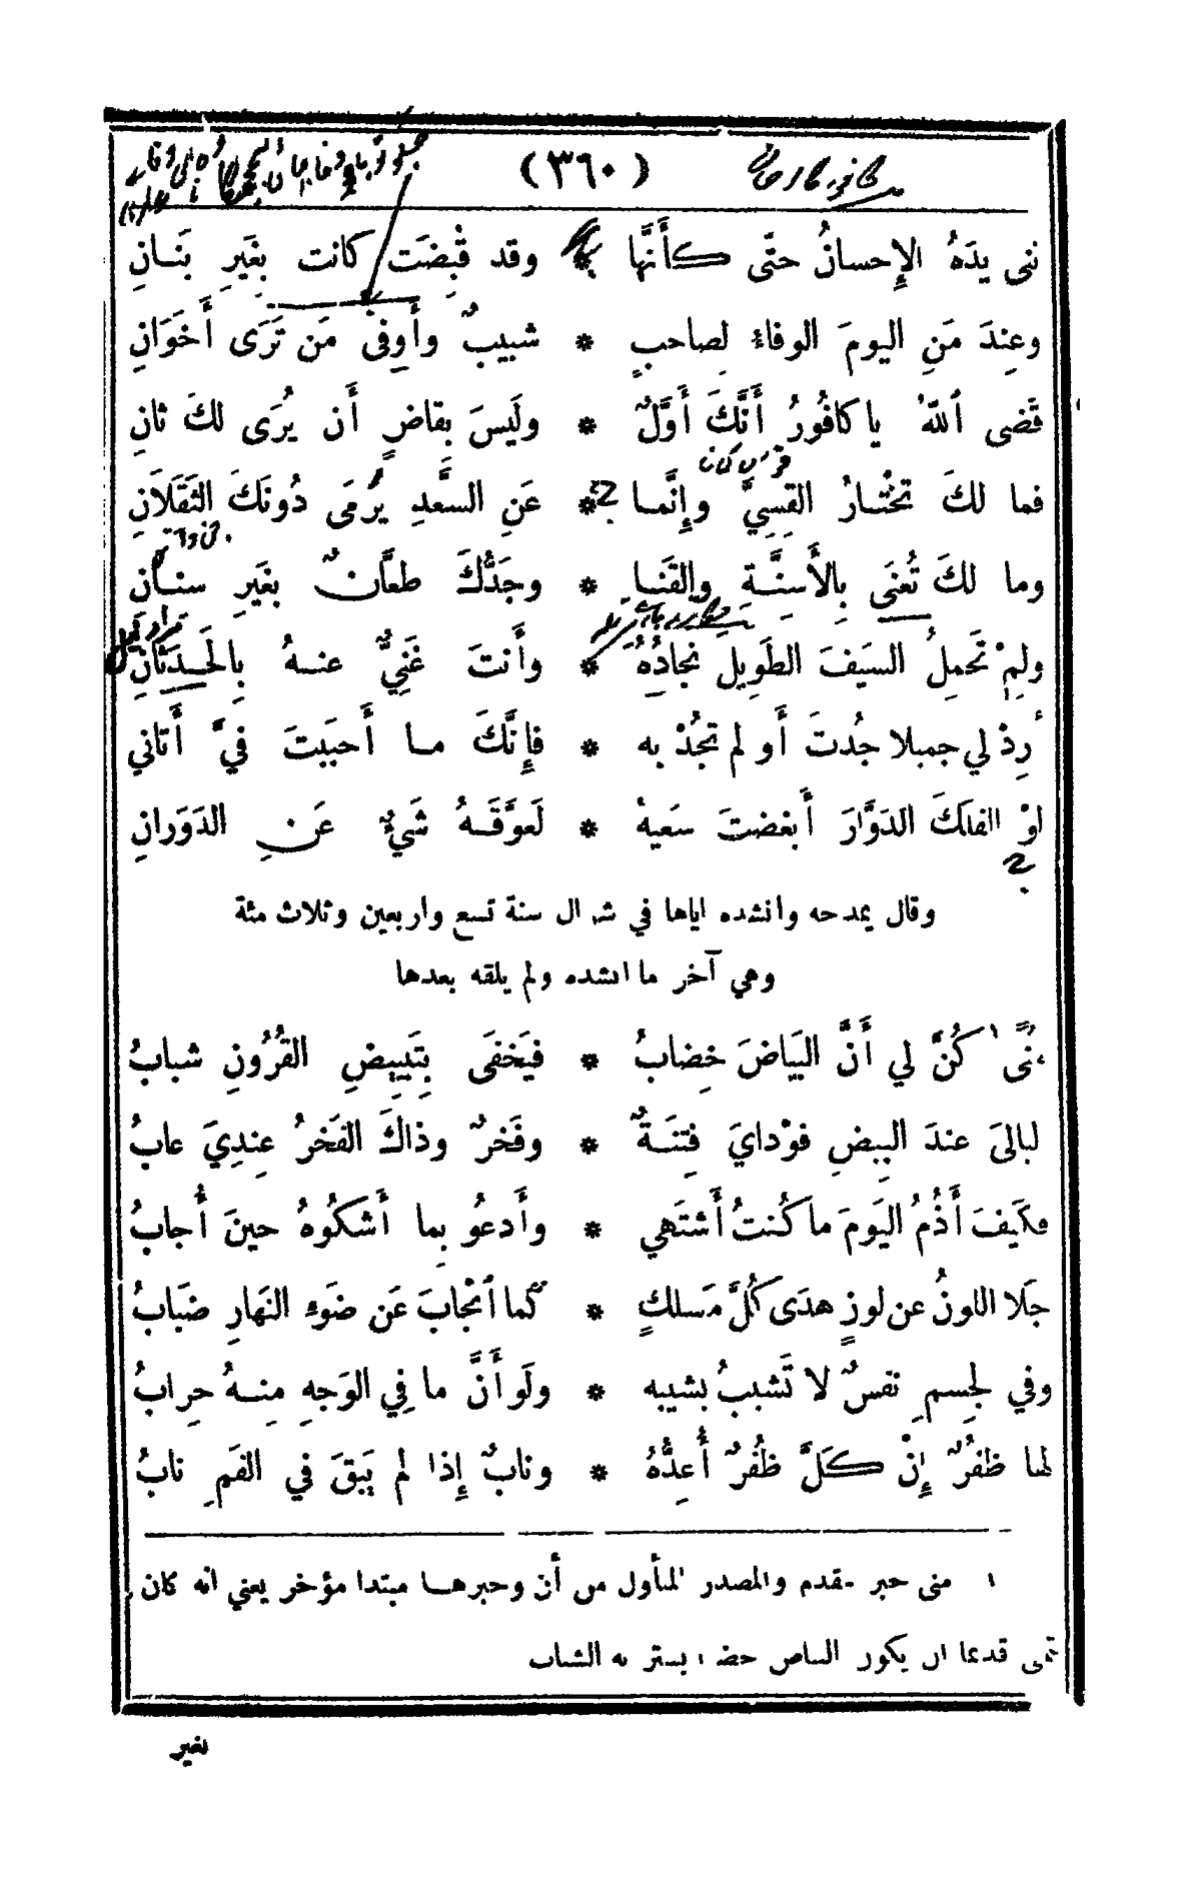 (٣٦٠)
ثنى يدَهُ الإِحسانُ حتَّى كأَنَّها * وقد قُبِضَت كانت بِغَيرِ بَنانِ
وعِندَ مَنِ اليومَ الوفاءُ لِصاحبٍ * شبيبٌ وأَوفى مَن تَرَى أَخَوَانِ
قَضى ٱللهُ ياكافُورُ أَنَّكَ أَوَّلٌ * ولَيسَ بِقاضٍ أَن يُرَى لكَ ثانِ
فما لكَ تَخْتارُ القِسِيَّ وإِنَّما * عَنِ السَّعدِ يُرْمَى دُونَكَ الثَقَلَانِ
وما لكَ تُعنَى بِالأَسِنَّةِ والقَنا * وجَدُّكَ طعَّانٌ بِغَيرِ سنانِ
ولِمْ تَحمِلُ السَيفَ الطَوِيلَ نجادُهُ * وأَنتَ غَنِيٌّ عنهُ بِالحَدَثَانِ
أَرِدْ لي جميلا جُدتَ أَو لم تَجُدْ به * فإِنَّكَ ما أَحبَبتَ فيَّ أَتاني
لوْ الفلكَ الدَوَّارَ أَبغضتَ سَعيهُ * لَعَوَّقَهُ شَيْءٌ عَنِ الدَوَرانِ
وقال يمدحه وانشده اياها في شوال سنة تسع واربعين وثلاث مئة
وهي آخر ما انشده ولم يلقه بعدها
مُنًى ١ كُنَّ لي أَنَّ البَياضَ خِضابُ * فيَخفَى بِتَبيِيضِ القُرُونِ شبابُ
ليالىَ عندَ البِيضِ فوْدايَ فِتنَةٌ * وفَخرٌ وذاكَ الفَخرُ عِندِيَ عابُ
فكَيفَ أَذُمُ اليَومَ ماكُنتُ أَشتَهي * وأَدعُو بِما أَشكُوهُ حينَ أُجابُ
جَلا اللونُ عن لونٍ هدَى كُلَّ مَسلكٍ * كما ٱنْجابَ عَن ضَوءِ النَهارِ ضَبابُ
وفي لجِسمِ نفسٌ لا تَشيبُ بشيبه * ولَو أَنَّ ما في الوَجهِ مِنهُ حِرابُ
لها ظفُرٌ إِنْ كَلَّ ظفُرٌ أُعِدُّهُ * ونابٌ إِذا لم يَبقَ في الفَمِ نابُ
١ منى خبر مقدم والمصدر المأول من أن وخبرها مبتدا مؤخر يعني انه كان
تمى قديما ان يكون البياض خضابا يستر به الشباب
بغير